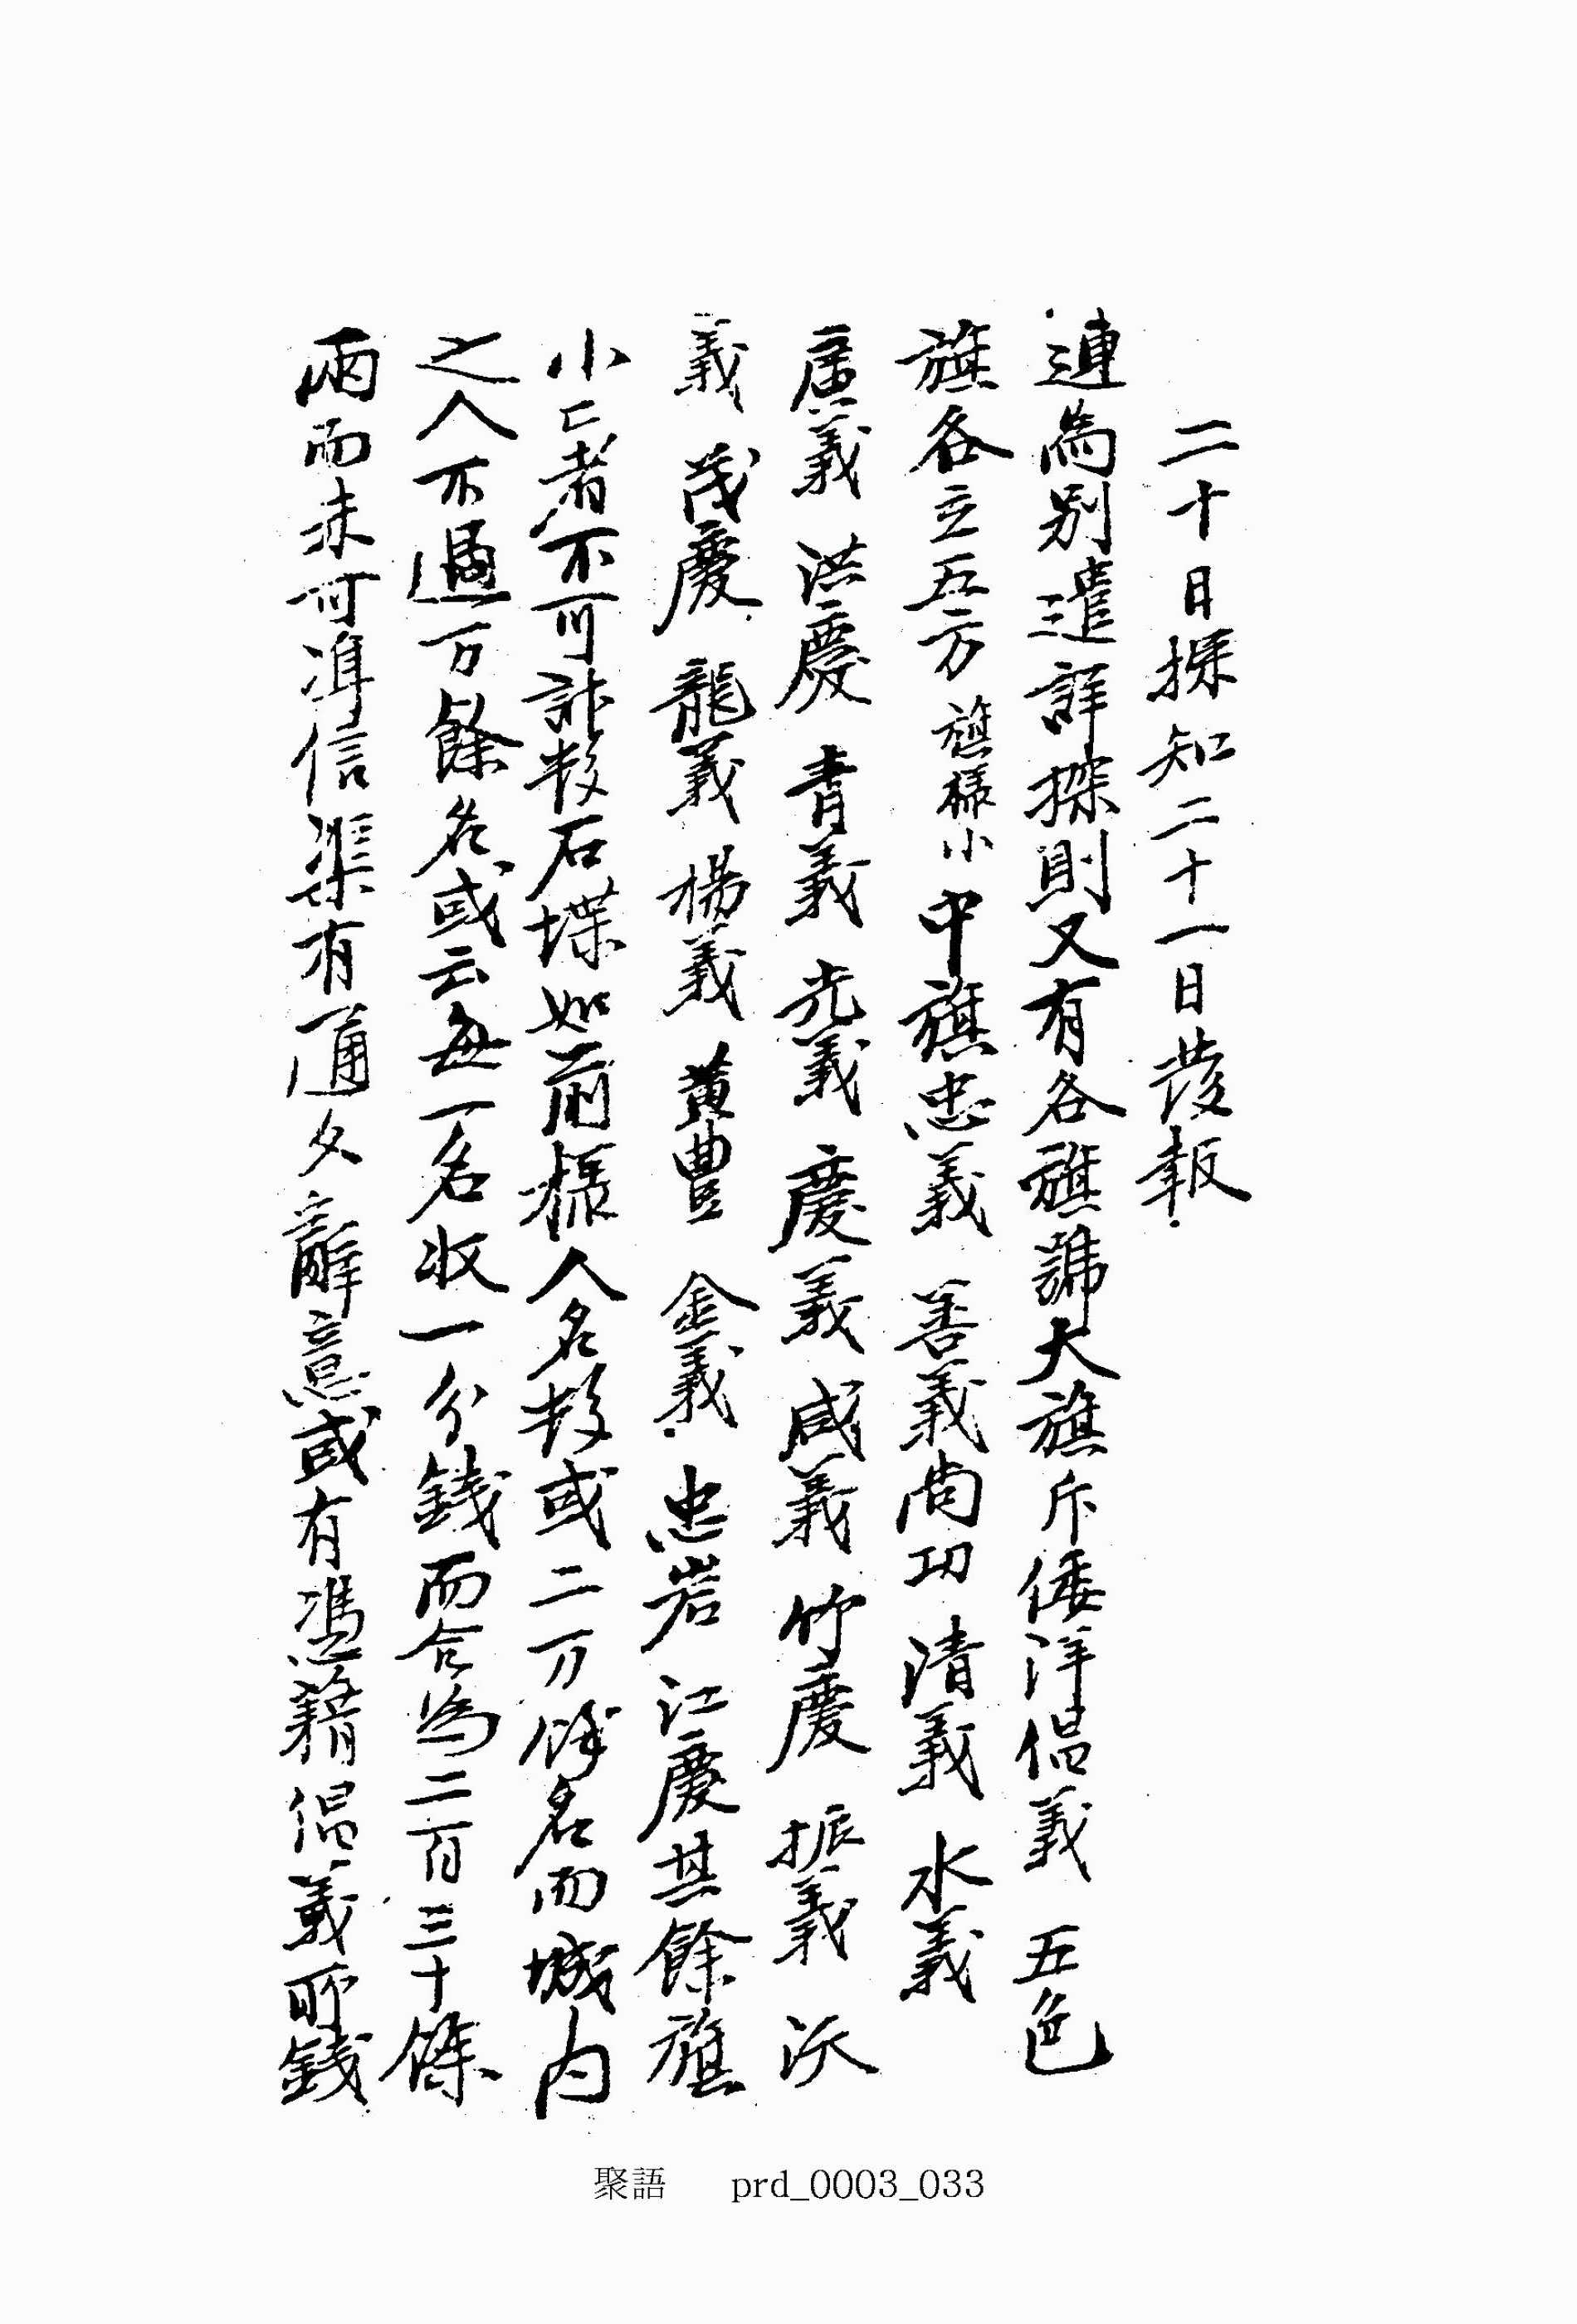 二十日探知二十一日發報
連為別遣詳探則又有各旗號大旗斥倭洋倡義 五色
旗各立五方 旗樣小 中旗忠義 善義 尚功 清義 水義
廣義 洪慶 青義 光義 慶義 咸義 竹慶 振義 沃
義 茂慶 龍義 楊義 黃豊 金義 忠岩 江慶其餘旗
小〻者不可計数石堞如前樣人名数或二万餘名而城内
之人不過万餘名或云每一名收一分錢而合為二百三十餘
兩而未可准信渠有通文辭意或有憑藉倡義所錢